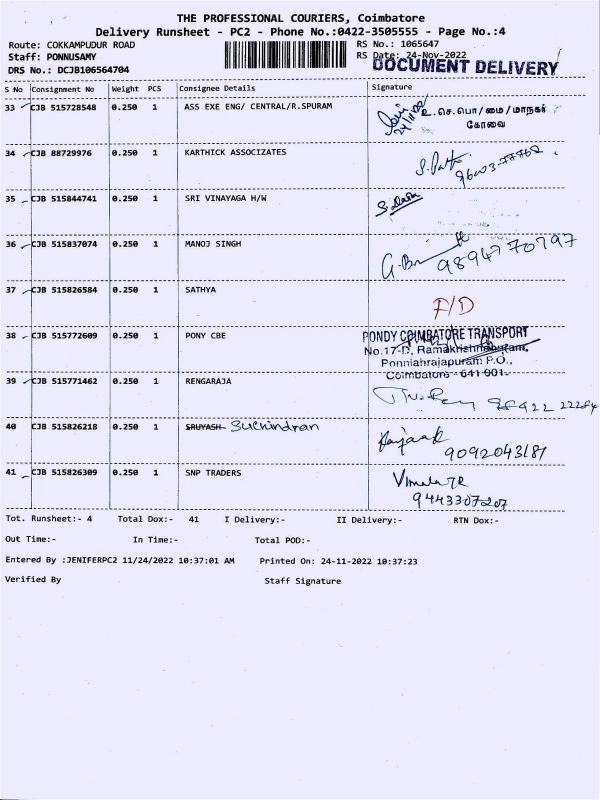 THE PROFESSIONAL COURIERS, Coimbatore
Delivery Runsheet - PC2 - Phone No.:0422-3505555 - Page No.:4
Route: COKKAMPUDUR ROAD
Staff: PONNUSAMY
DRS No.: DCJB106564704
RS No.: 1065647
RS Date: 24-Nov-2022
DOCUMENT DELIVERY
S No Consignment No Weight PCS Consignee Details Signature
33 CJB 515728548 0.250 1 ASS EXE ENG/ CENTRAL/R.SPURAM
24/11/22
உ.செ.பொ/மை/மாநகர்
கோவை
34 CJB 88729976 0.250 1 KARTHICK ASSOCIZATES
35 CJB 515844741 0.250 1 SRI VINAYAGA H/W
36 CJB 515837074 0.250 1 MANOJ SINGH
9894770797
37 CJB 515826584 0.250 1 SATHYA
F/D
38 CJB 515772609 0.250 1 PONY CBE
PONDY COIMBATORE TRANSPORT
No.17-D, Ramakrishnapuram,
Ponniahrajapuram P.O.,
Coimbatore - 641 001.
39 CJB 515771462 0.250 1 RENGARAJA
40 CJB 515826218 0.250 1 SRUYASH Suchindran
9092043181
41 CJB 515826309 0.250 1 SNP TRADERS
9443307207
Tot. Runsheet:- 4 Total Dox:- 41 I Delivery:- II Delivery:- RTN Dox:-
Out Time:- In Time:- Total POD:-
Entered By :JENIFERPC2 11/24/2022 10:37:01 AM Printed On: 24-11-2022 10:37:23
Verified By Staff Signature